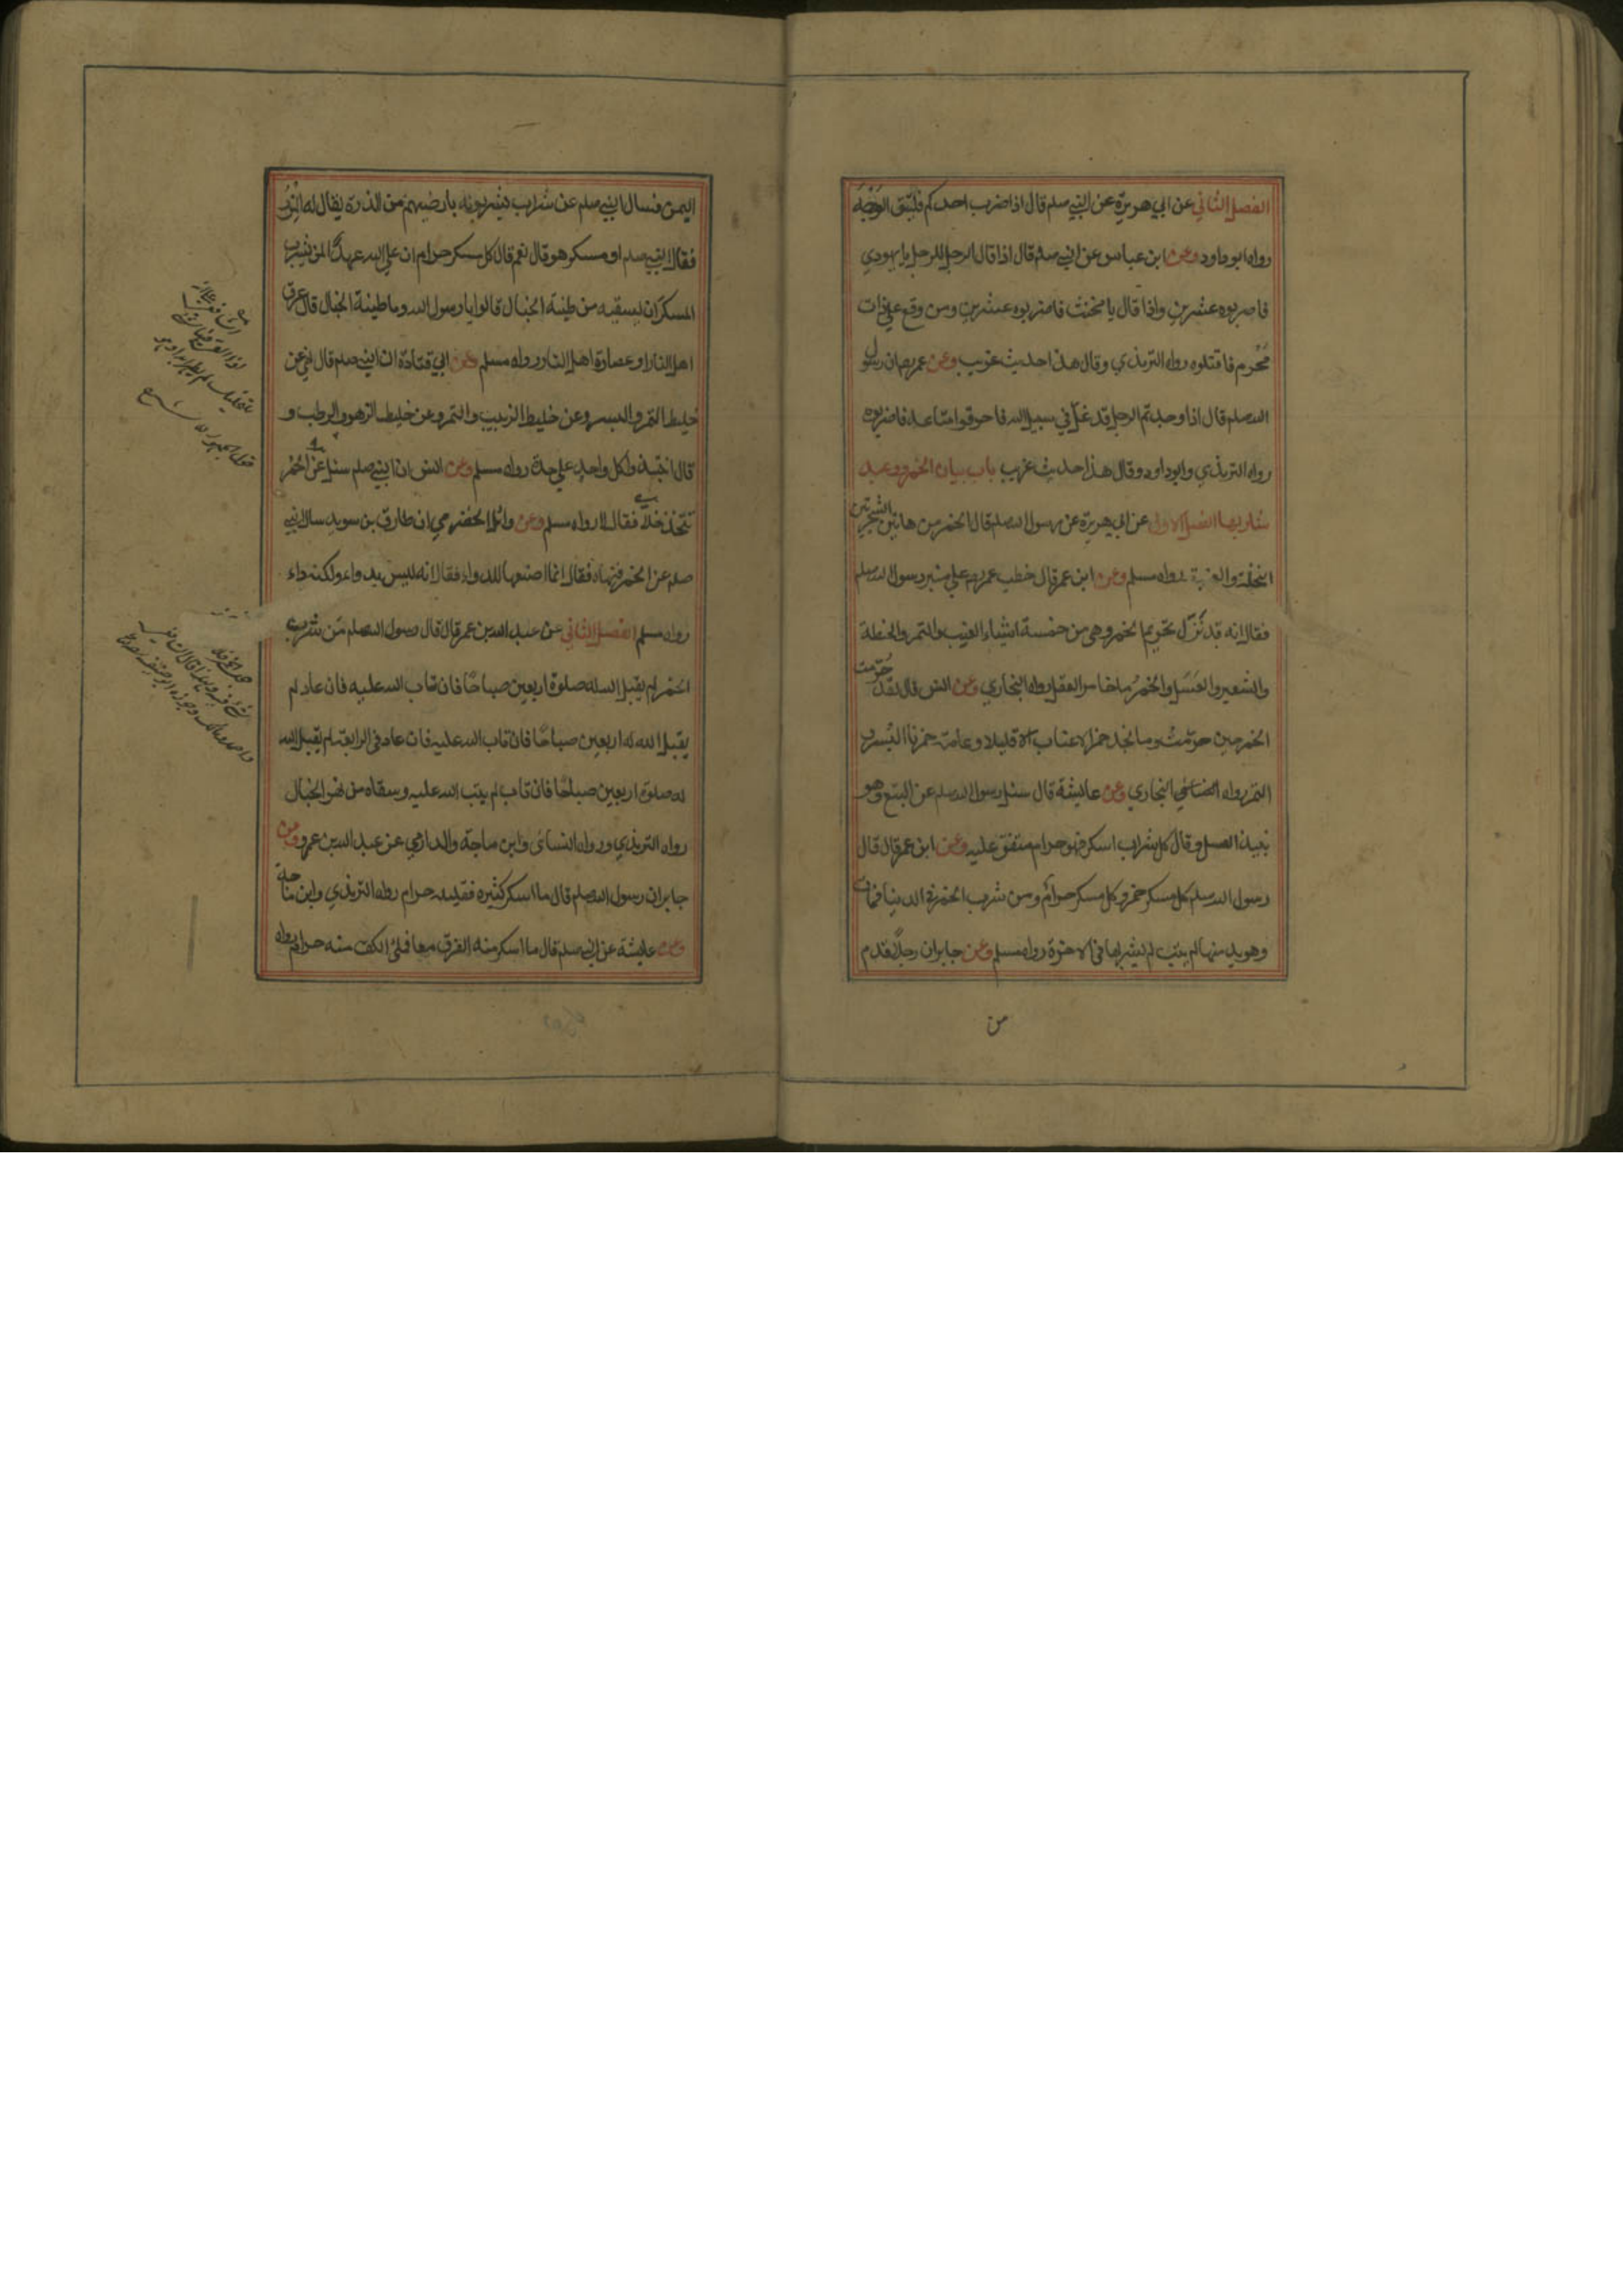 الفصل الثاني عن ابي هريرة عن النبي صلم قال اذا ضرب احدكم فليتق الوجه
رواه ابو داود وعن ابن عباس عن النبي صلم قال اذا قال الرجل للرجل يا يهودي
فاضربوه عشرين واذا قال يا مخنث فاضربوه عشرين ومن وقع علي ذات
محرم فاقتلوه رواه الترمذي وقال هذا حديث غريب وعن عمر رض ان رسول
الله صلم قال اذا وجدتم الرجل قد غل في سبيل الله فاحرقوا متاعه فاضربوه
رواه الترمذي وابو داود وقال هذا حديث غريب باب بيان الخمر ووعيد
شاربها الفصل الاول عن ابي هريرة عن رسول الله صلم قال الخمر من هاتين الشجرتين
النخلة والعنبة رواه مسلم وعن ابن عمر قال خطب عمر رض علي منبر رسول الله صلم
فقال انه قد نزل تحريم الخمر وهي من خمسة اشياء العنب والتمر والحنطة
والشعير والعسل والخمر ما خامر العقل رواه البخاري وعن انس قال لقد حرمت
الخمر حين حرمت وما نجد خمر الاعناب الا قليلا وعامة خمرنا البسر و
التمر رواه البخاري وعن عايشة قال سئل رسول الله صلم عن البتع وهو
نبيذ العسل وقال كل شراب اسكر فهو حرام متفق عليه وعن ابن عمر قال قال
رسول الله صلم كل مسكر خمر وكل مسكر حرام ومن شرب الخمر في الدنيا فمات
وهو يدمنها لم يتب لم يشربها في الاخرة رواه مسلم وعن جابر ان رجلا قدم
من
اليمن فسال النبي صلم عن شراب يشربونه بارضيهم من الذرة يقال له المزر
فقال النبي صلم او مسكر هو قال نعم قال كل مسكر حرام ان علي الله عهدا لمن يشرب
المسكر ان يسقيه من طينة الخبال قالوا يا رسول الله وما طينة الخبال قال عرق
اهل النار او عصارة اهل النار رواه مسلم وعن ابي قتادة ان النبي صلم قال نهي عن
خليط التمر والبسر وعن خليط الزبيب والتمر وعن خليط الزهو والرطب و
قال انتبذوا كل واحد علي حدة رواه مسلم وعن انس ان النبي صلم سئل عن الخمر
تتخذ خلا فقال لا رواه مسلم وعن وائل الحضرمي ان طارق بن سويد سال النبي
صلم عن الخمر فنهاه فقال انما اصنعها للدواء فقال انه ليس بدواء ولكنه داء
رواه مسلم الفصل الثاني عن عبد الله بن عمر قال قال رسول الله صلم من شرب
الخمر لم يقبل الله له صلوة اربعين صباحا فان تاب الله عليه فان عاد لم
يقبل الله له اربعين صباحا فان تاب الله عليه فان عاد في الرابعة لم يقبل الله
له صلوة اربعين صباحا فان تاب لم يتب الله عليه وسقاه من نهر الخبال
رواه الترمذي ورواه النسائي وابن ماجة والدارمي عن عبد الله بن عمرو وعن
جابر ان رسول الله صلم قال ما اسكر كثيره فقليله حرام رواه الترمذي وابن ماجه
وعن عايشة عن النبي صلم قال ما اسكر منه الفرق معا فملئ الكف منه حرام رواه